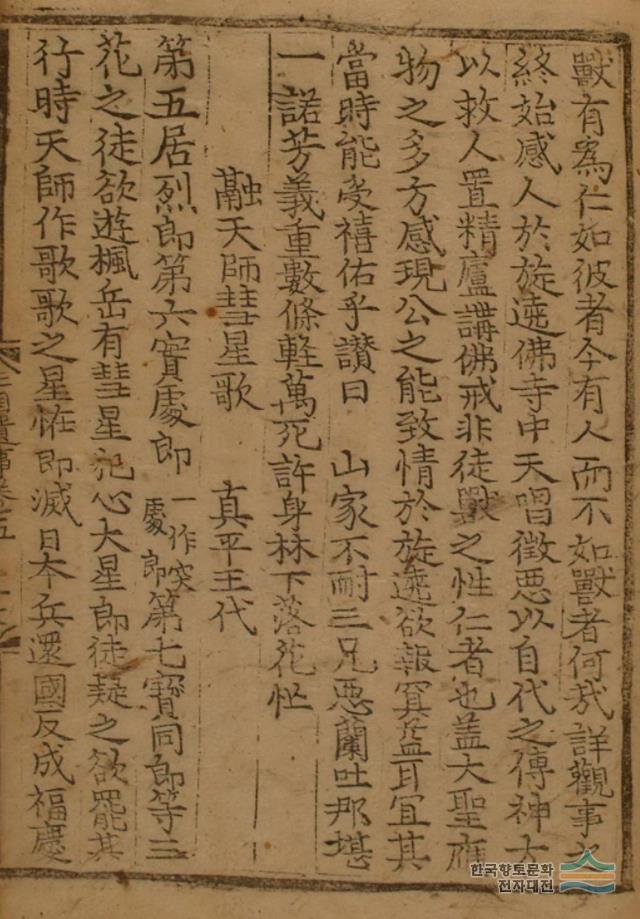 獸有爲仁如彼者今有人而不如獸者何㢤詳觀事之
終始感人於旋遶佛寺中天唱徵惡以自代之傳神方
以救人置精廬講佛戒非徒獸之性仁者也盖大聖應
物之多方感現公之能致情於旋遶欲報冥益耳宜其
當時能受禧佑乎讃曰 山家不耐三兄惡蘭吐那堪
一諾芳義重數條軽萬死許身林下落花忙
融天師彗星歌 真平王代
第五居烈郎第六實處郎一作突處郎第七寳同郎等三
花之徒欲遊楓岳有彗星犯心大星郎徒疑之欲罷其
行時天師作歌歌之星恠即滅日夲兵還國反成福慶
三國遺事卷五
한국향토문화
전자대전